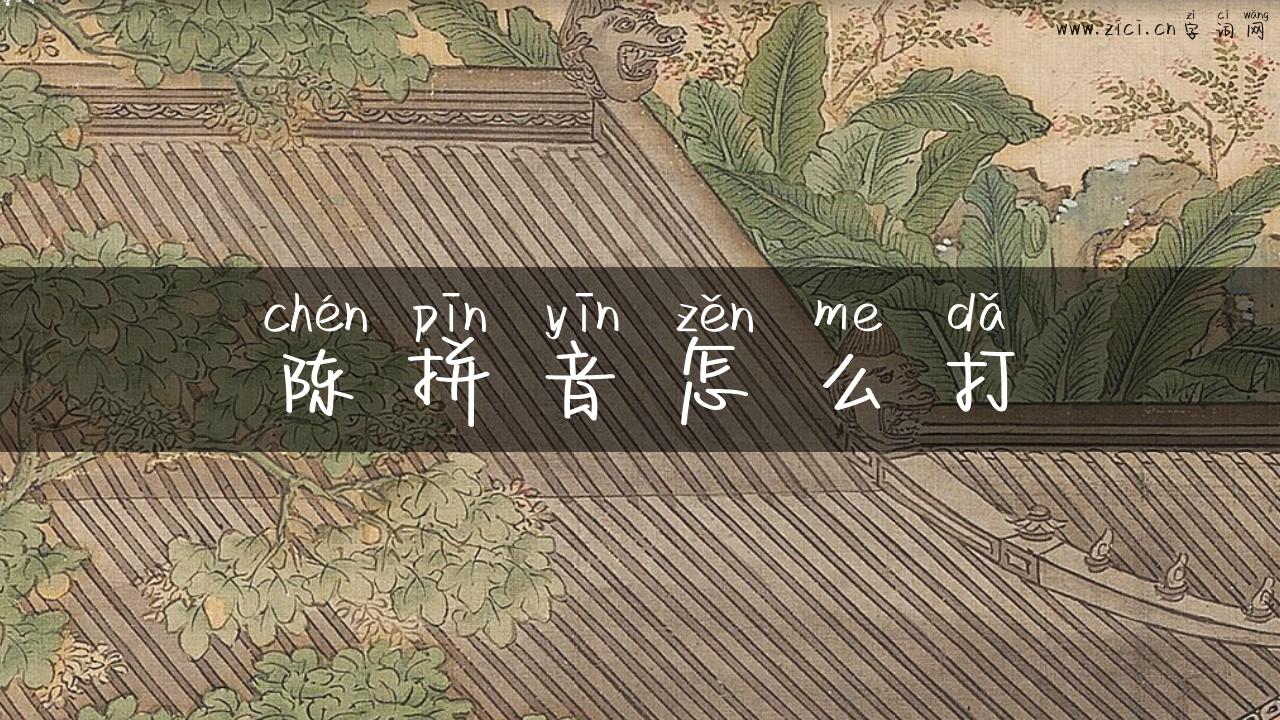 zì cí wǎng
www.zici.cn 字词网
chén pīn yīn zěn me dǎ
陈拼音怎么打